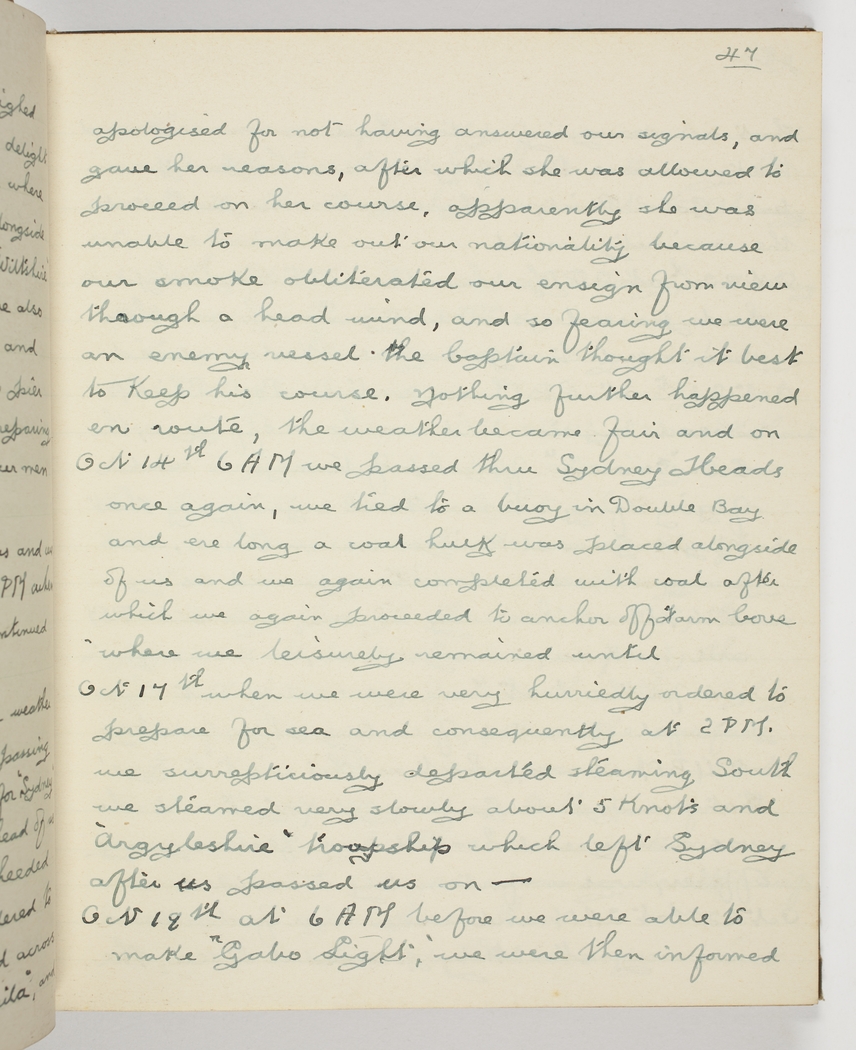 47
apologised for not having answered our signals, and
gave her reasons, after which she was allowed to
proceed on her course, apparently she was
unable to make out our nationality because
our smoke obliterated our ensign from view
through a head wind, and so fearing we were
an enemy vessel the Captain thought it best
to Keep his course. Nothing further happened
en route, the weather became fair and on
Oct 14th 6 AM we passed thru Sydney Heads
once again, we tied to a buoy in Double Bay
and ere long a coal hulk was placed alongside
of us and we again completed with coal after
which we again proceeded to anchor off Farm Cove
where we leisurely remained until
Oct 17th when we were very hurriedly ordered to
prepare for sea and consequently at 2 PM.
we surrepticiously departed steaming South
we steamed very slowly about 5 Knots and
"Argyleshire" troopship which left Sydney
after us passed us on —
Oct 19th at 6 AM before we were able to
make "Gabo Light", we were then informed
ighed
delight
where
longside
Wiltshire
e also
and
pier
reparing
ur men
PM
ntinued
weather
passing
for "Sydney"
ead of
heeded
dered to
d across
ila", and